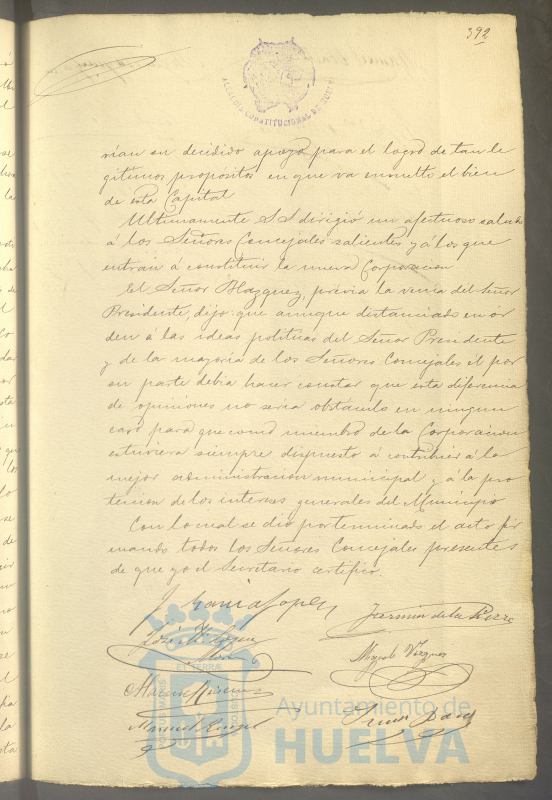 392
ALCALDIA CONSTITUCIONAL DE HUELVA
rían su decidido apoyo para el logro de tan le
gitimos propositos en que va envuelto el bien
de esta Capital
Ultimamente S.S. dirigió un afectuoso saludo
á los Señores Concejales salientes y á los que
entran á constituir la nueva Corporacion
El Señor Blazquez, prévia la venia del Señor
Presidente, dijo: que aunque distanciado en or
den á las ideas politicas del Señor Presidente
y de la mayoria de los Señores Concejales el por
su parte debia hacer constar que esta diferencia
de opiniones no seria obstáculo en ningun
caso para que como miembro de la Corporacion
estuviera siempre dispuesto á contribuir á la
mejor administracion municipal y á la pro
teccion de los intereses generales del Municipio
Con lo cual se dió por terminado el acto fir
mando todos los Señores Concejales presentes
de que yo el Secretario certifico.
J. Garcia Lopez
Fermin de la
José M.
Miguel Vazquez
Manuel
Ayuntamiento de
HUELVA